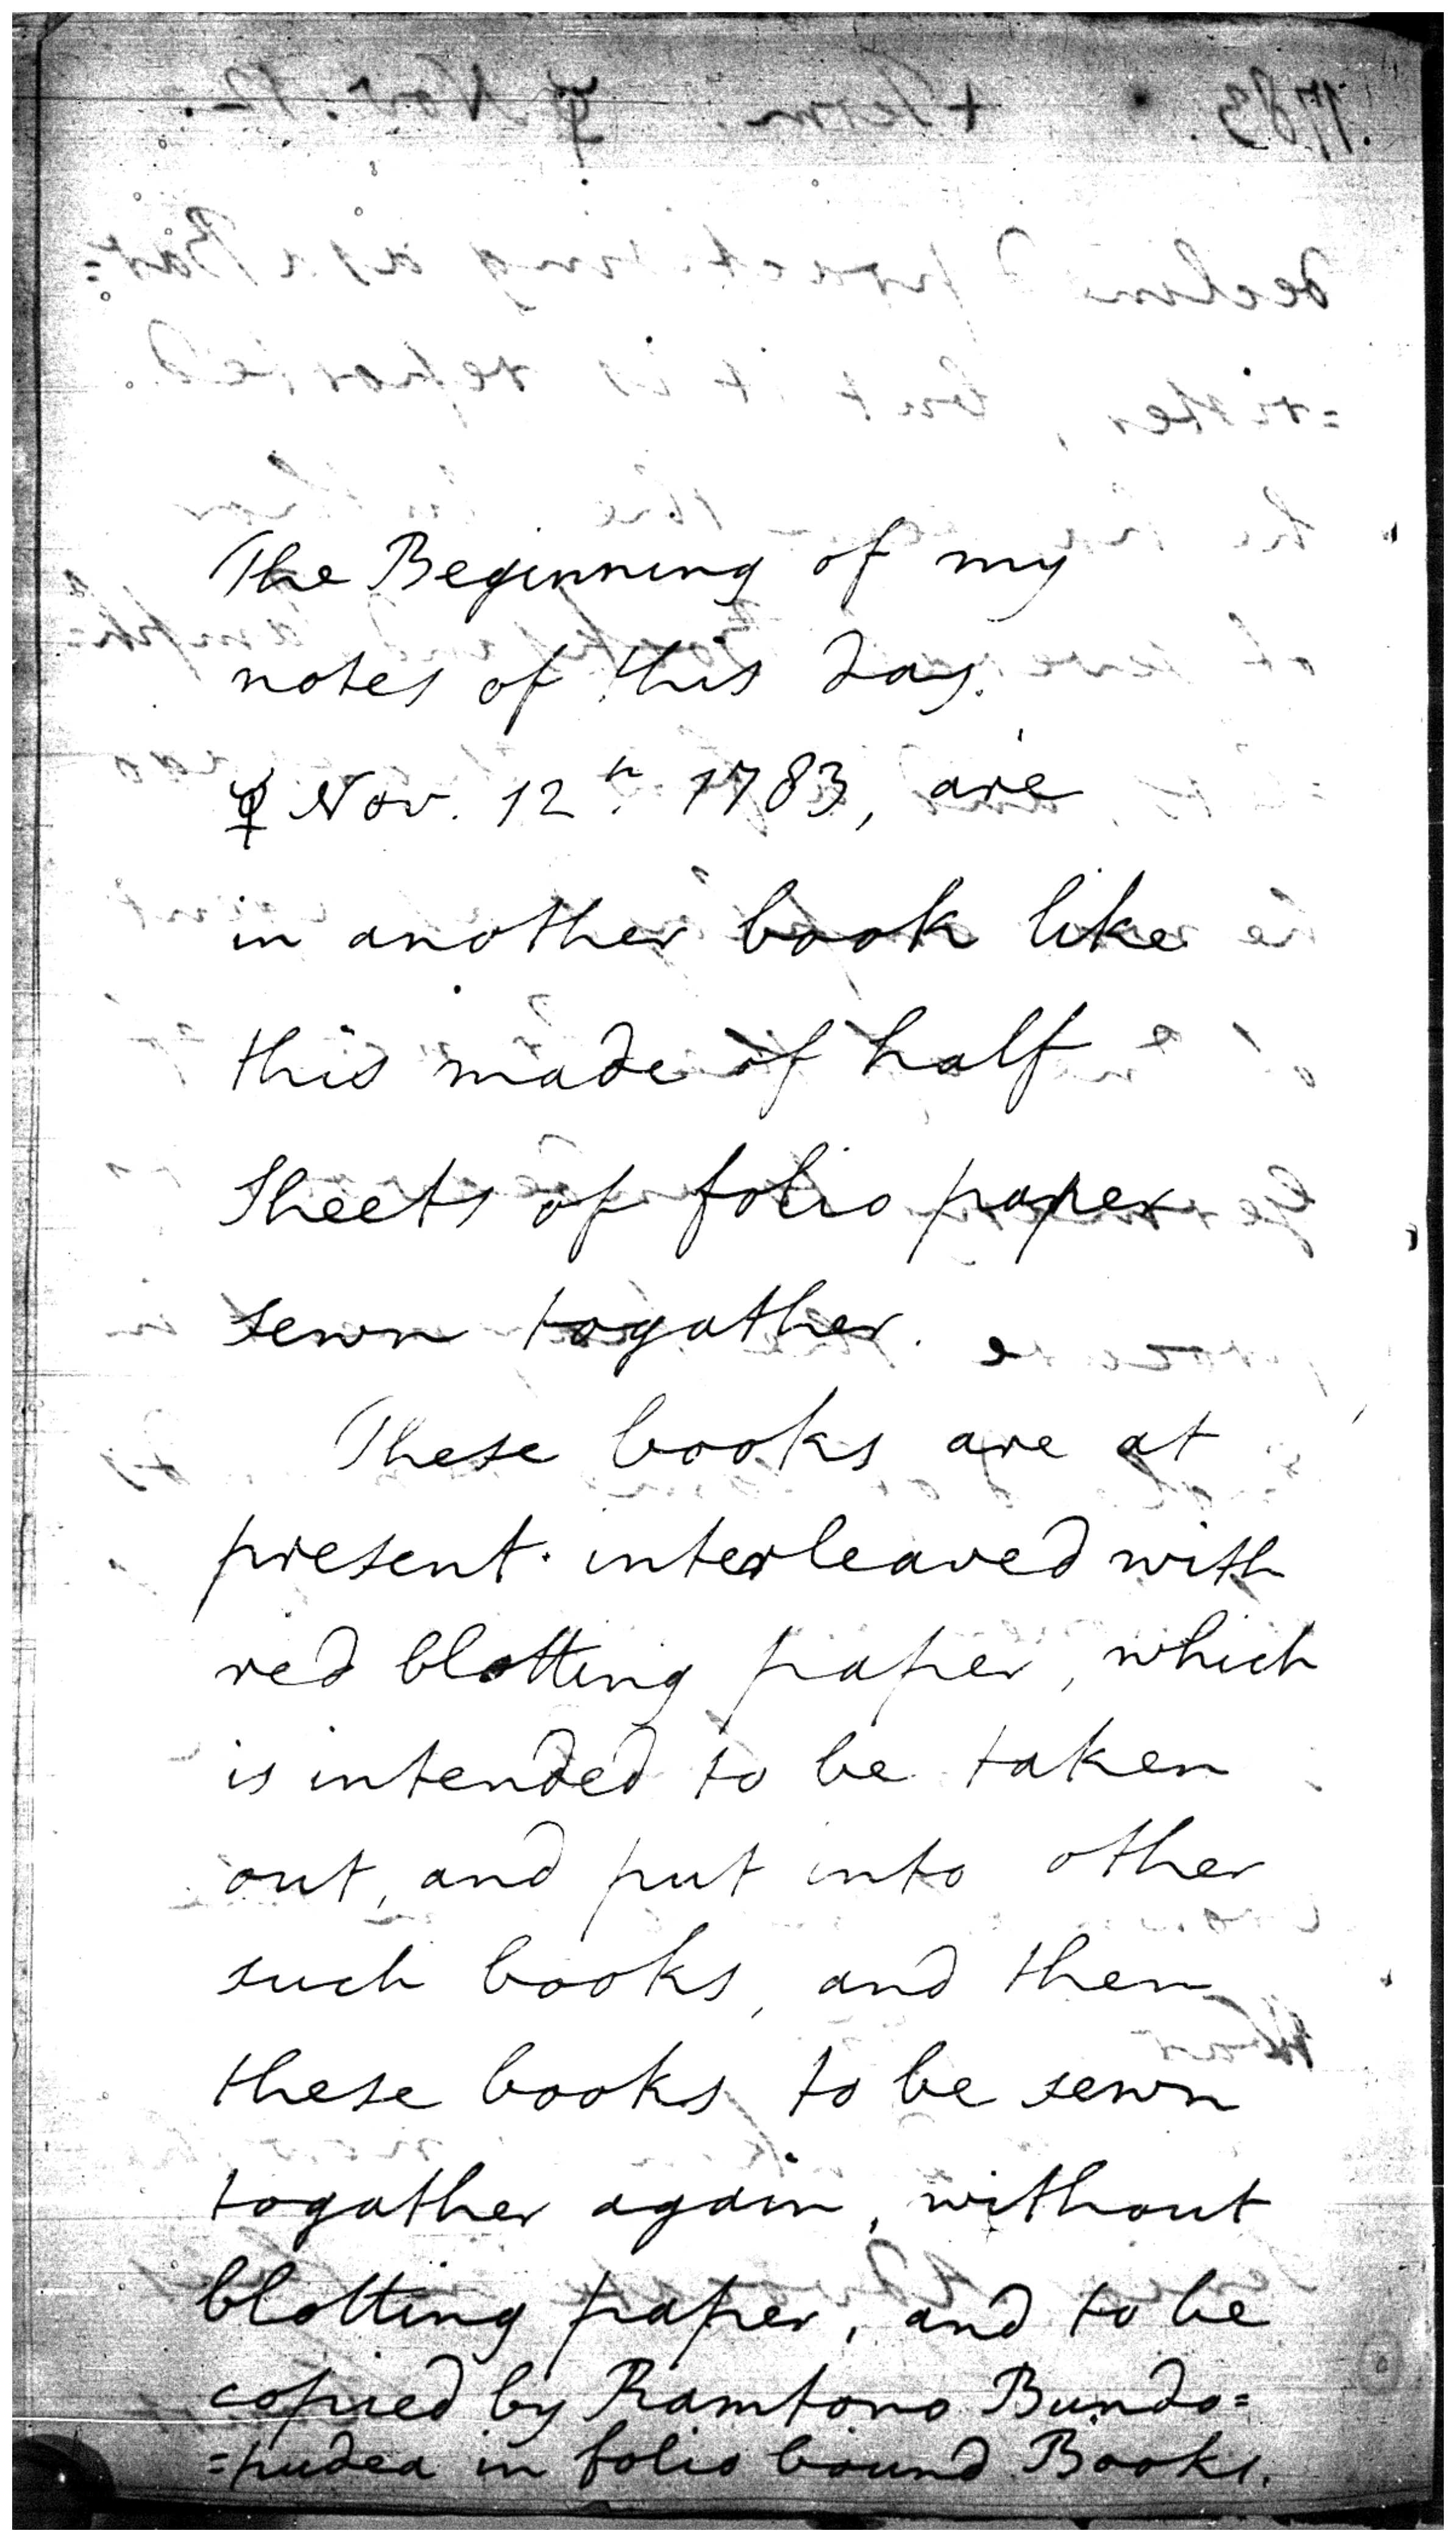 The Beginning of my
notes of this day.
☿ Nov. 12th. 1783, are
in another book like
this made of half
Sheets of folio paper
sewn togather.
These books are at
present interleaved with
red blotting paper, which
is intended to be taken
out, and put into other
such books, and then
these books to be sewn
togather again, without
blotting paper, and to be
copied by Ramtono Bundo=
=pudea in folio bound Books.